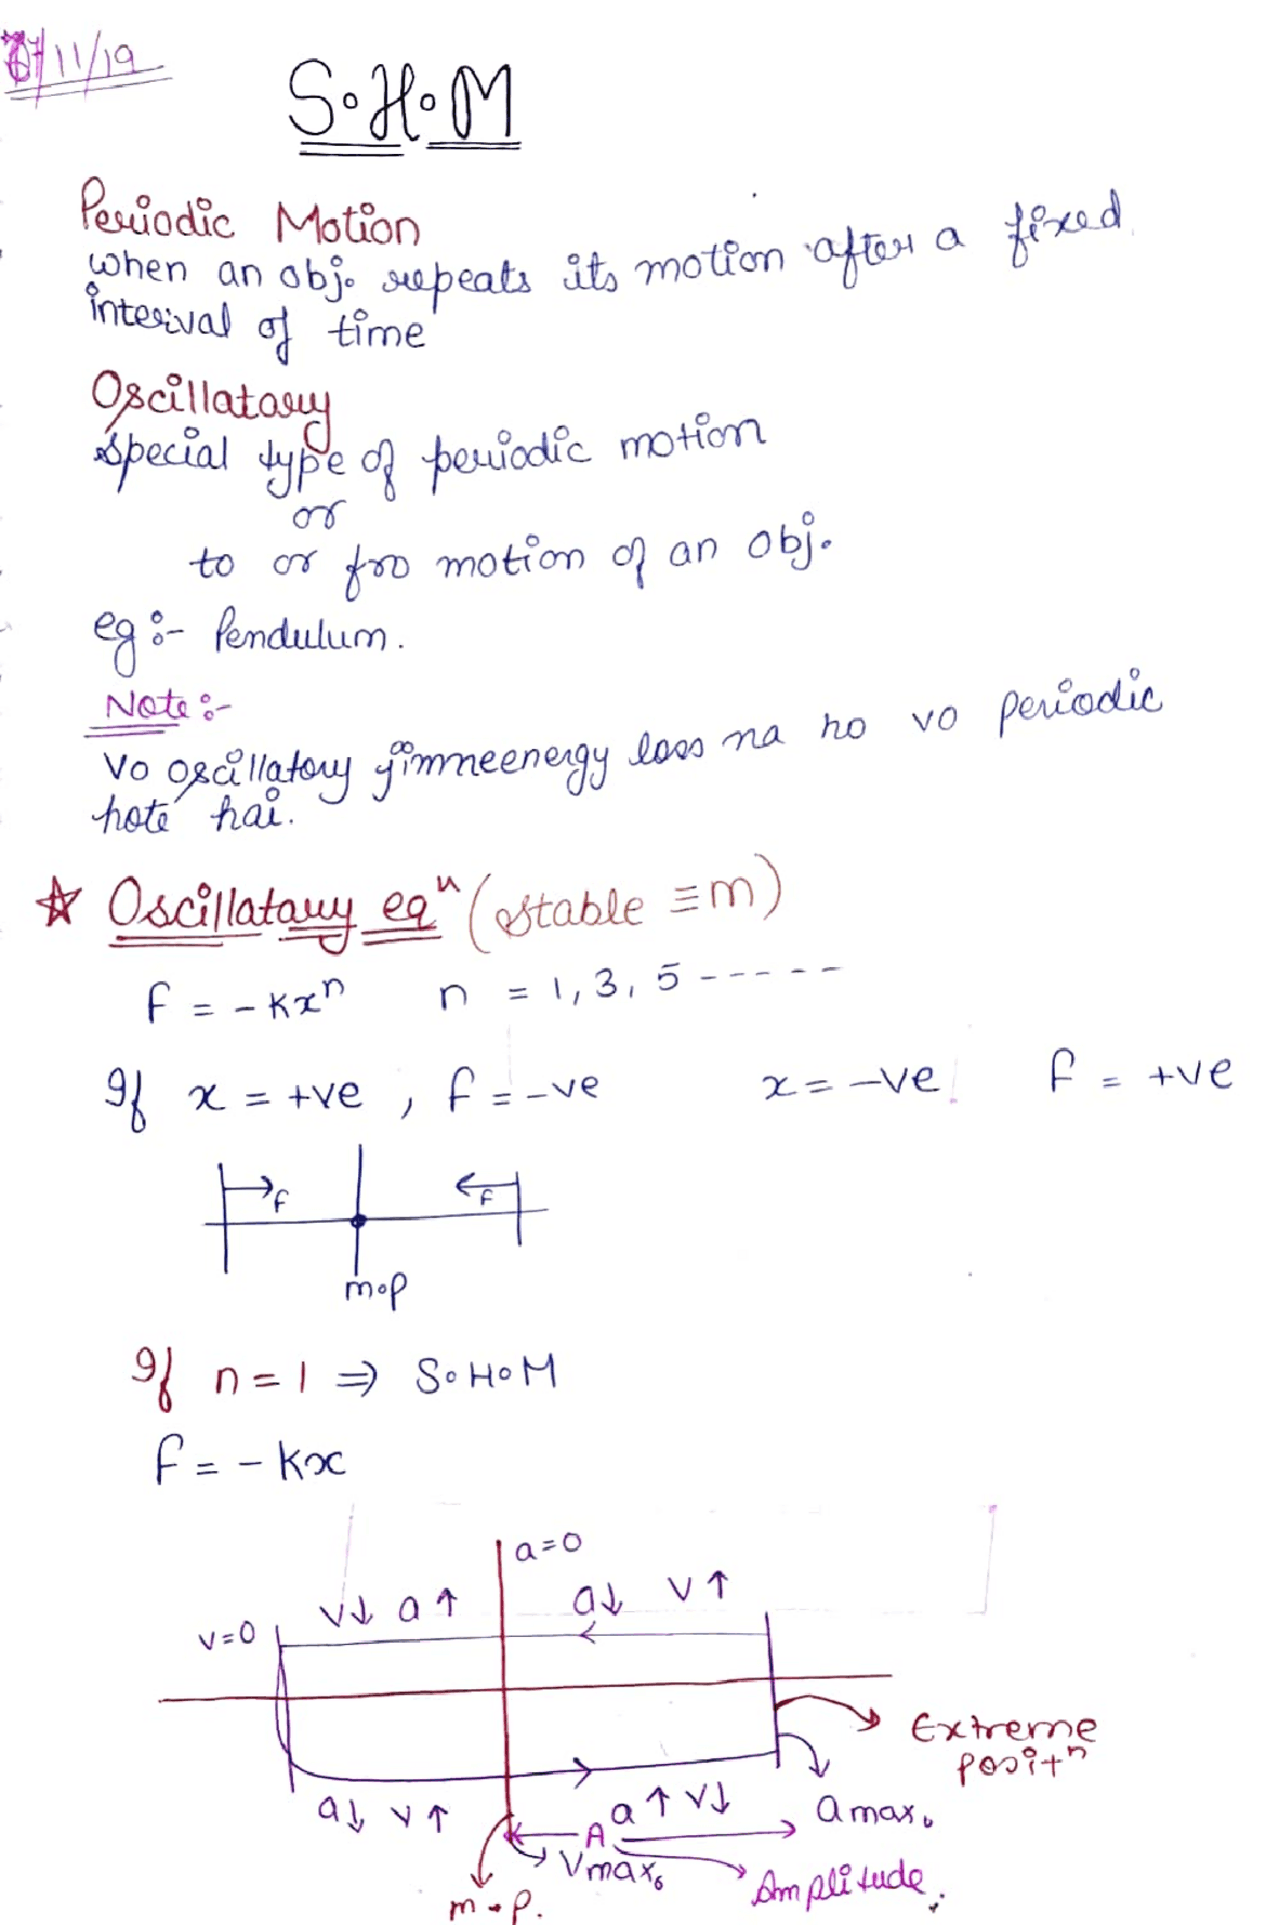 11/19
S.H.M
Periodic Motion
when an obj. repeats its motion after a fixed
interval of time
Oscillatory
special type of periodic motion
or
to or fro motion of an obj.
eg:- Pendulum.
Note:-
Vo oscillatory jimmeenergy loss na ho vo periodic
hote hai.
☆ Oscillatory eqⁿ (stable ≡m)
f = -kxⁿ n = 1, 3, 5 ------
If x = +ve , f = -ve x = -ve f = +ve
f f
m.p
If n = 1 ⇒ S.H.M
f = - kx
a=0
v↓ a↑ a↓ v↑
v=0
Extreme
positⁿ
a↓ v↑ a↑ v↓ amax.
A
Vmax. Amplitude.
m.p.